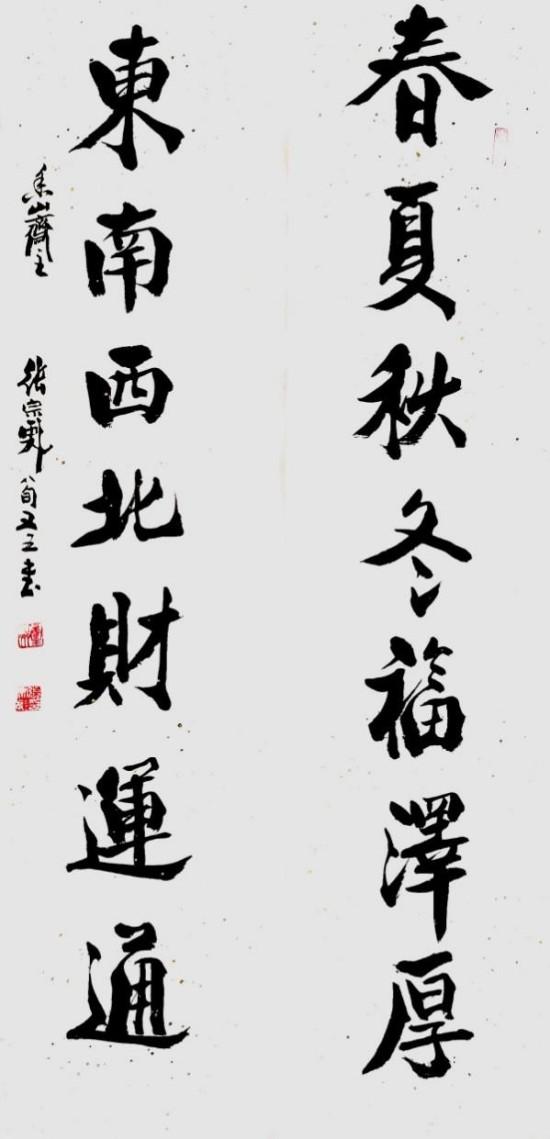 春夏秋冬福澤厚
東南西北財運通
香山齋主
張宗彪八旬又三書